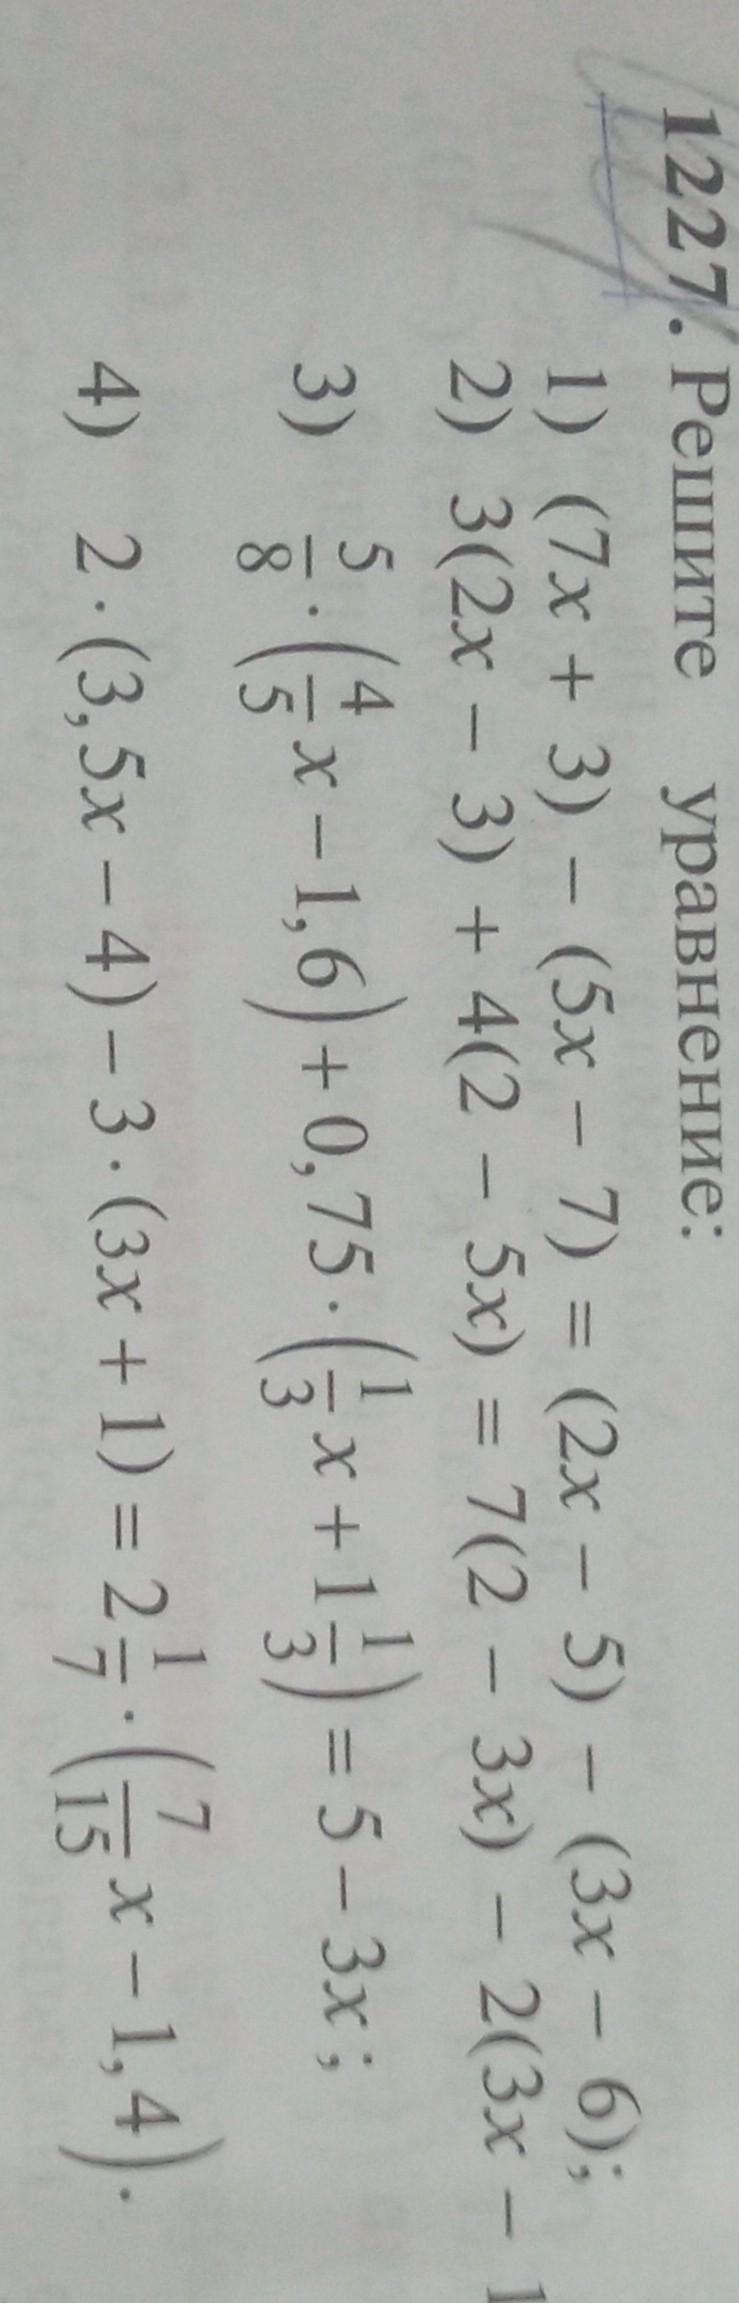 1227. Решите уравнение:
1) (7x + 3) − (5x − 7) = (2x − 5) − (3x − 6);
2) 3(2x − 3) + 4(2 − 5x) = 7(2 − 3x) − 2(3x − 1
3) 5/8 · (4/5 x − 1,6) + 0,75 · (1/3 x + 1 1/3) = 5 − 3x;
4) 2 · (3,5x − 4) − 3 · (3x + 1) = 2 1/7 · (7/15 x − 1,4).